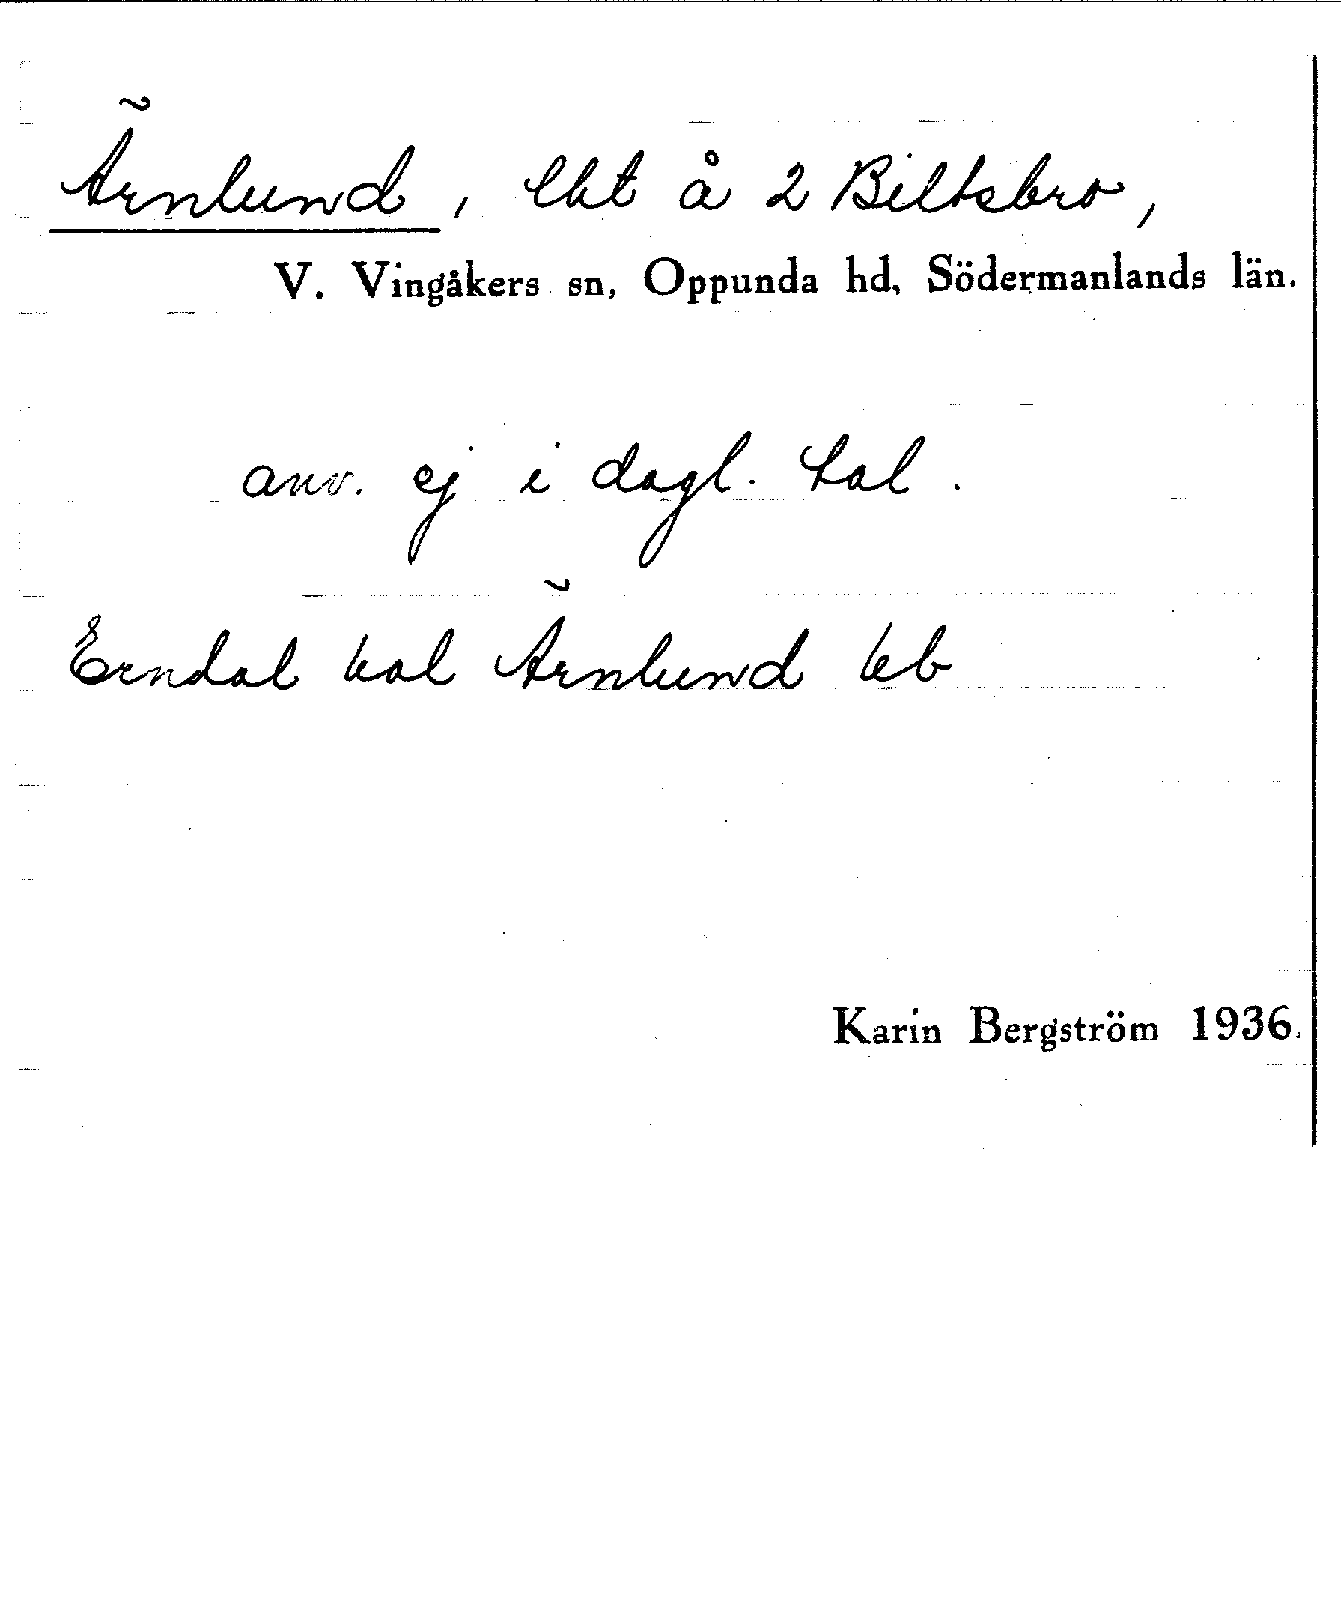 Ärnlund, lht å 2 Biltsbro,
V. Vingåkers sn, Oppunda hd, Södermanlands län.
anv. ej i dagl. tal.
Erndal kal Ärnlund kb
Karin Bergström 1936.